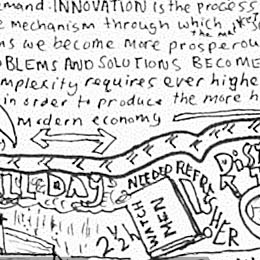 mand. INNOVATION is the process
e mechanism through which
the market
ns we become more prosperou
OBLEMS AND SOLUTIONS BECOME
mplexity requires ever highe
in order to produce the more h
modern economy
ALL DAY
NEEDED REFRESHER
WATCH
MEN
2 1/2 h